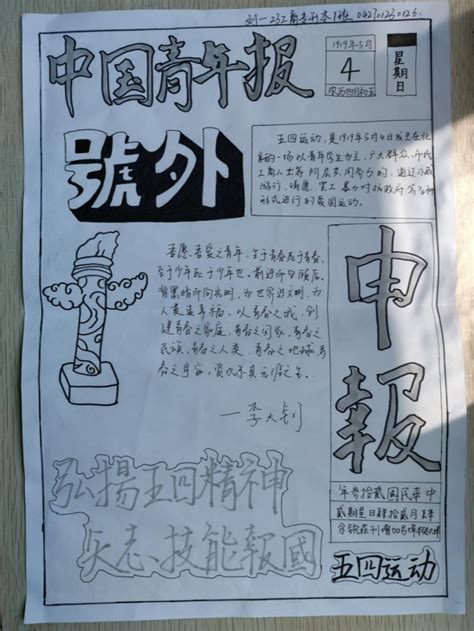 刘一 23工商专升本1班 0427023026
中国青年报
1919年5月
4
农历四月初五
星期日
號外
五四运动，是1919年5月4日发生在北
京的一场以青年学生为主，广大群众、市民、
工商人士等阶层共同参与的，通过示威
游行、请愿、罢工、暴力对抗政府等多种
形式进行的爱国运动。
吾愿吾亲爱之青年，生于青春死于青春，
生于少年死于少年也。前进而勿顾后，
背黑暗而向光明，为世界进文明，为
人类造幸福，以青春之我，创
建青春之家庭，青春之国家，青春之
民族，青春之人类，青春之地球，青
春之宇宙，资以乐其无涯之生。
——李大钊
申
報
年叁拾貳國民華中
貳期星日肆拾貳月五
五四运动
弘揚五四精神
矢志技能報國